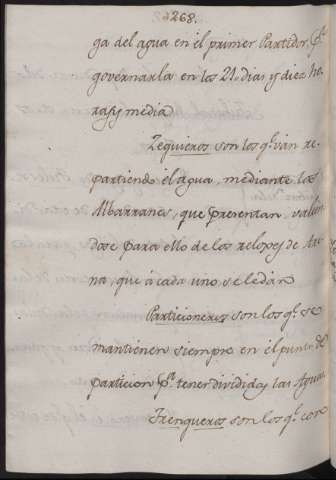 268.
ga del agua en el primer Partidor, pª
governarla en los 21. dias y diez ho
ras y media
Zequieros son los qe. ván re
partiendo el agua, mediante los
Albarranes, que presentan, valien
dose para ello de los reloxes de Are
na, que á cada uno se le dán
Particioneros son los qe. se
mantienen siempre en el punto de
particion pª. tener divididas las Aguas
Frenqueros son los qe. con